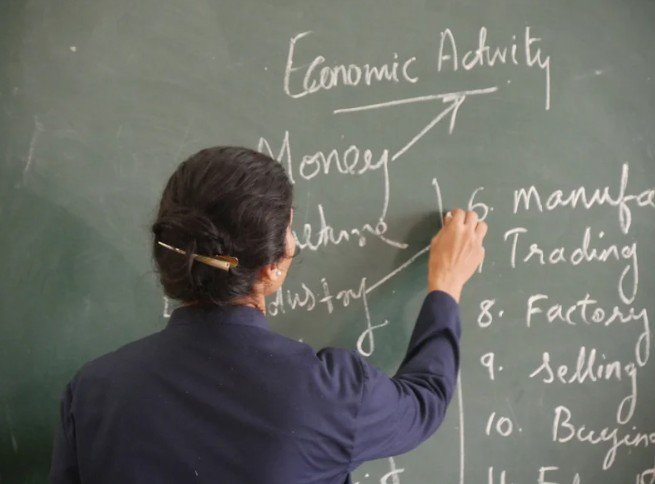 Economic Activity
Money
dustry
6. manufa
Trading
8. Factory
9. selling
10. Buyin
11.